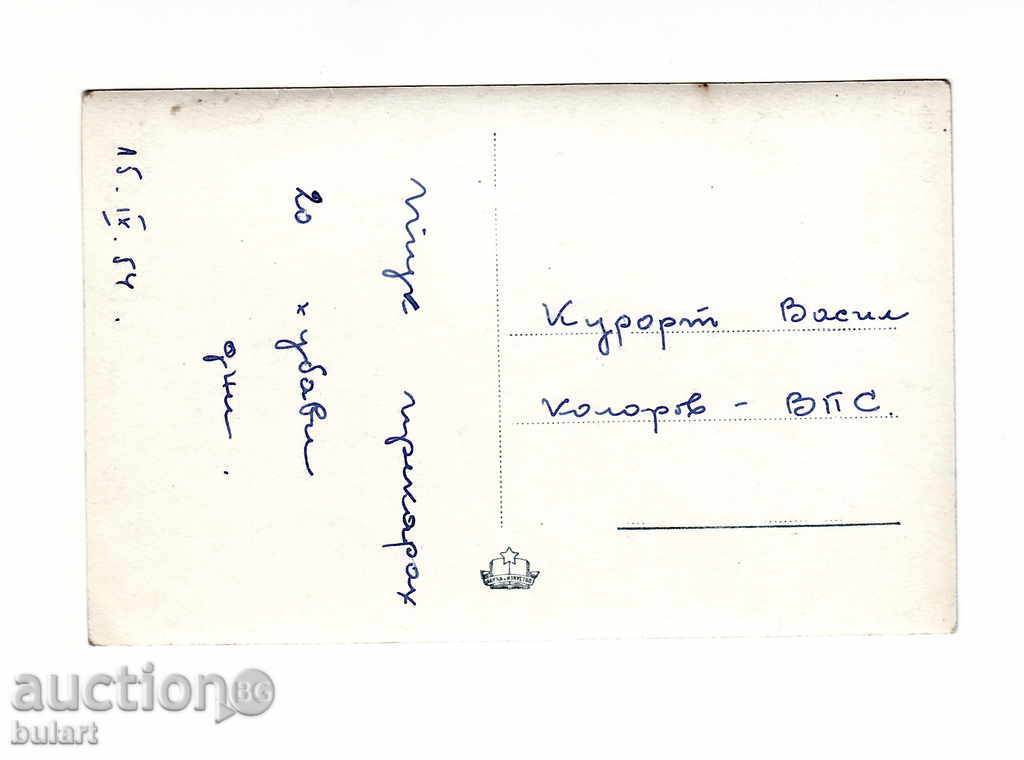 Тук прекарах
20 хубави
дни.
15. IX. 54.
Курорт Васил
Коларов - ВПС.
НАУКА И ИЗКУСТВО
auction BG
bulart